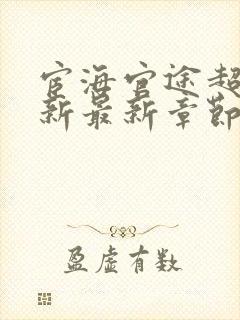 宦海官途超
新最新章節
盈虚有数